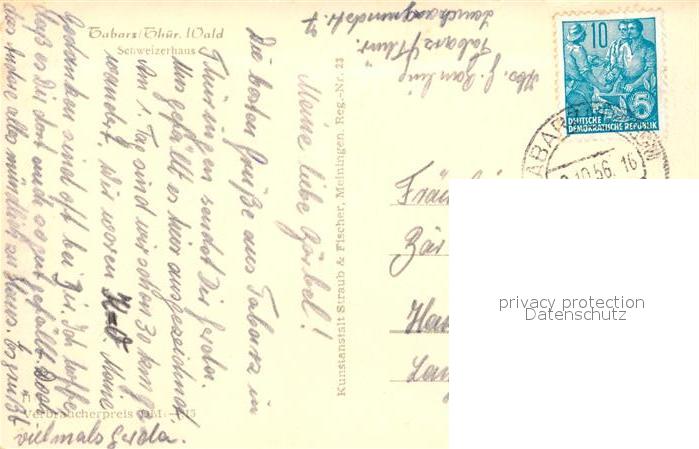 Tabarz/Thür. Wald
Schweizerhaus
Meine liebe Bärbel!
Die besten Grüße aus Tabarz in
Thüringen sendet Dir Gerda.
Uns gefällt es hier ausgezeichnet.
Am 1. Tag sind wir schon 30 km ge-
wandert. Wir waren K.O. Meine
Gedanken sind oft bei Dir. Ich hoffe
daß es Dir dort auch so gut gefällt. Doch
das andere alles mündlich zu Haus. Es grüßt
vielmals Gerda.
Verbraucherpreis DM
Kunstanstalt Straub & Fischer, Meiningen. Reg.-Nr. 23
Abs. G.
Tabarz/Thür.
10
5
DEUTSCHE
DEMOKRATISCHE REPUBLIK
TABARZ
10.56. 16
Fräu
Bär
Ha
privacy protection
Datenschutz